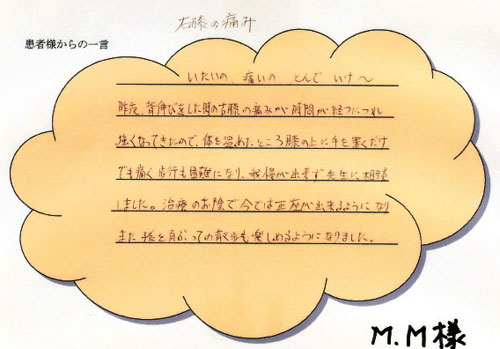 右膝の痛み
患者様からの一言
いたいの、痛いの とんで いけ〜
昨夜、背伸びをした時の右膝の痛みが時間が経つにつれ
強くなってきたので、体を温めたところ膝の上に手を置くだけ
でも痛く歩行も困難になり、我慢が出来ず先生に相談
しました。治療のお陰で今では正座が出来るようになり
また孫を負ぶっての散歩も楽しめるようになりました。
M.M様